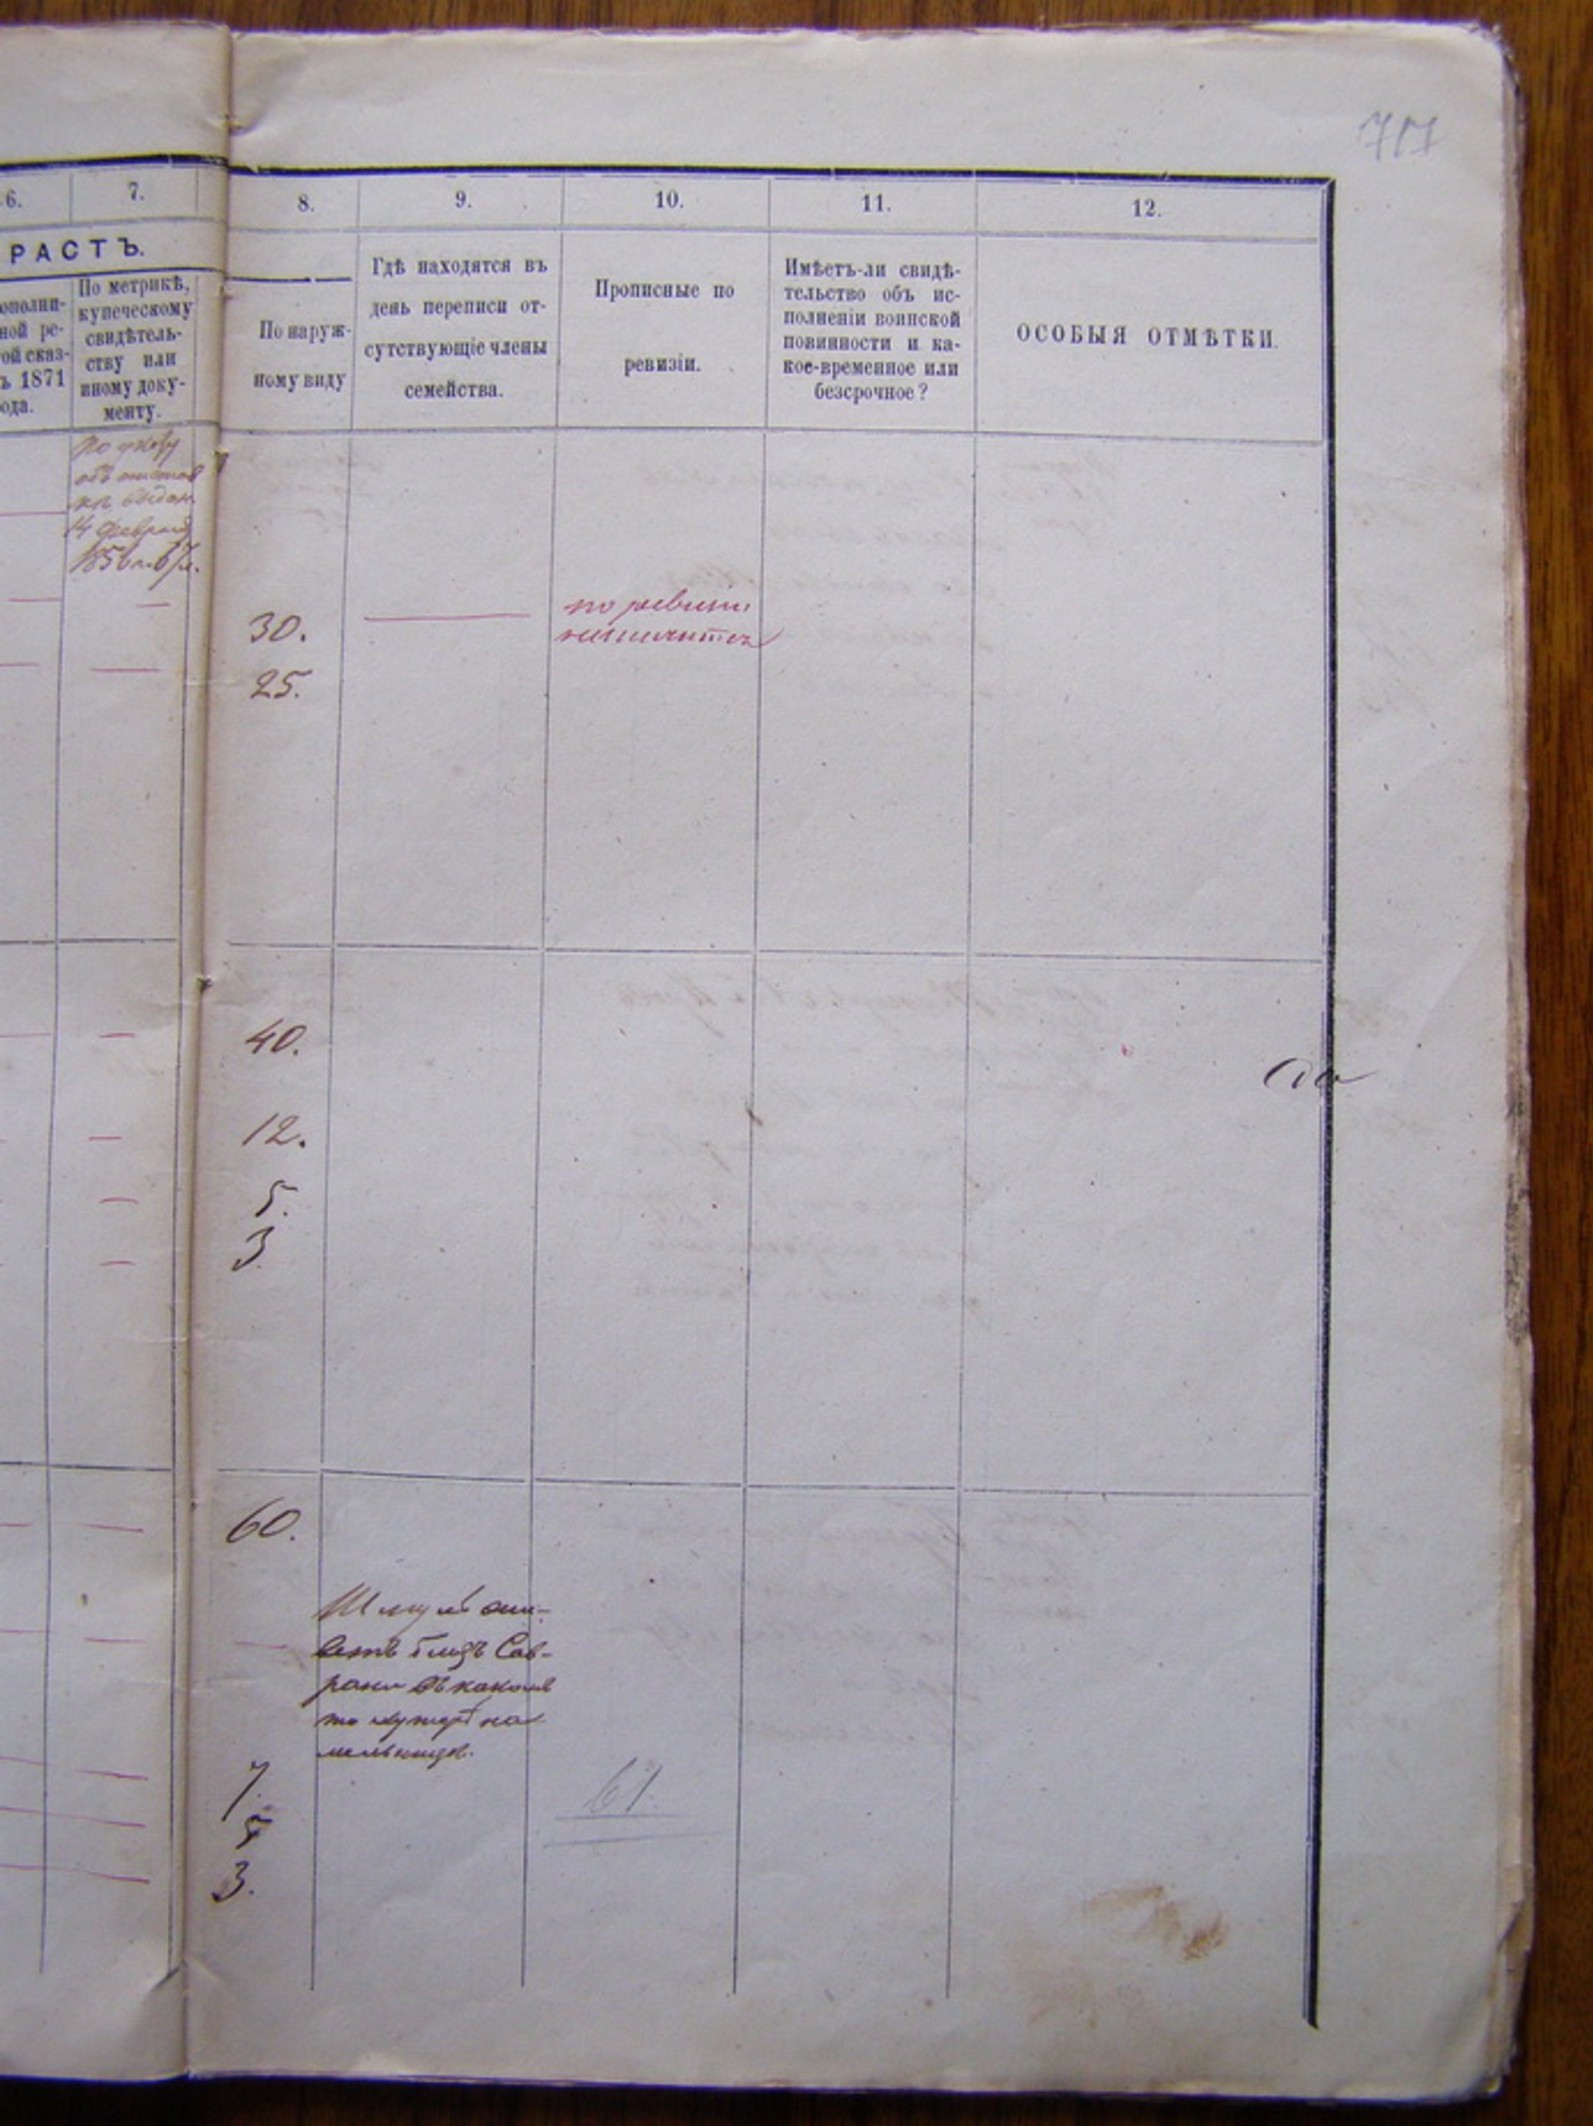 717
6.
7.
8.
9.
10.
11.
12.
РАСТЪ.
ополни-
ной ре-
ой сказ-
ъ 1871
ода.
По метрикѣ,
купеческому
свидѣтель-
ству или
иному доку-
менту.
По наруж-
ному виду
Гдѣ находятся въ
день переписи от-
сутствующіе члены
семейства.
Прописные по
ревизіи.
Имѣетъ-ли свидѣ-
тельство объ ис-
полненіи воинской
повинности и ка-
кое-временное или
безсрочное?
ОСОБЫЯ ОТМѢТКИ.
по указу
объ
14 февраля
30.
по ревизіи
25.
40.
12.
5.
3.
60.
Шмуль жи-
ветъ близъ Сав-
рани въ какомъ
то хуторѣ на
мельницѣ.
7.
61.
5
3.